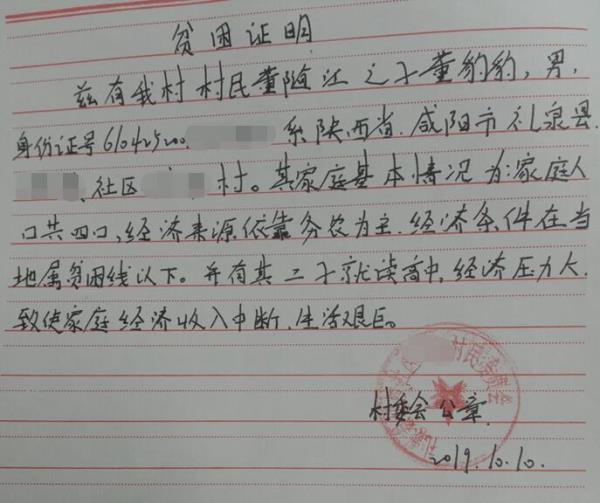 贫困证明
兹有我村村民董随江之子董豹豹,男,
身份证号610425200 系陕西省.咸阳市礼泉县.
社区 村。其家庭基本情况为:家庭人
口共四口,经济来源依靠务农为主.经济条件在当
地属贫困线以下。并有其二子就读高中,经济压力大.
致使家庭经济收入中断.生活艰巨。
村民委员会
村委会公章.
2019.10.10.